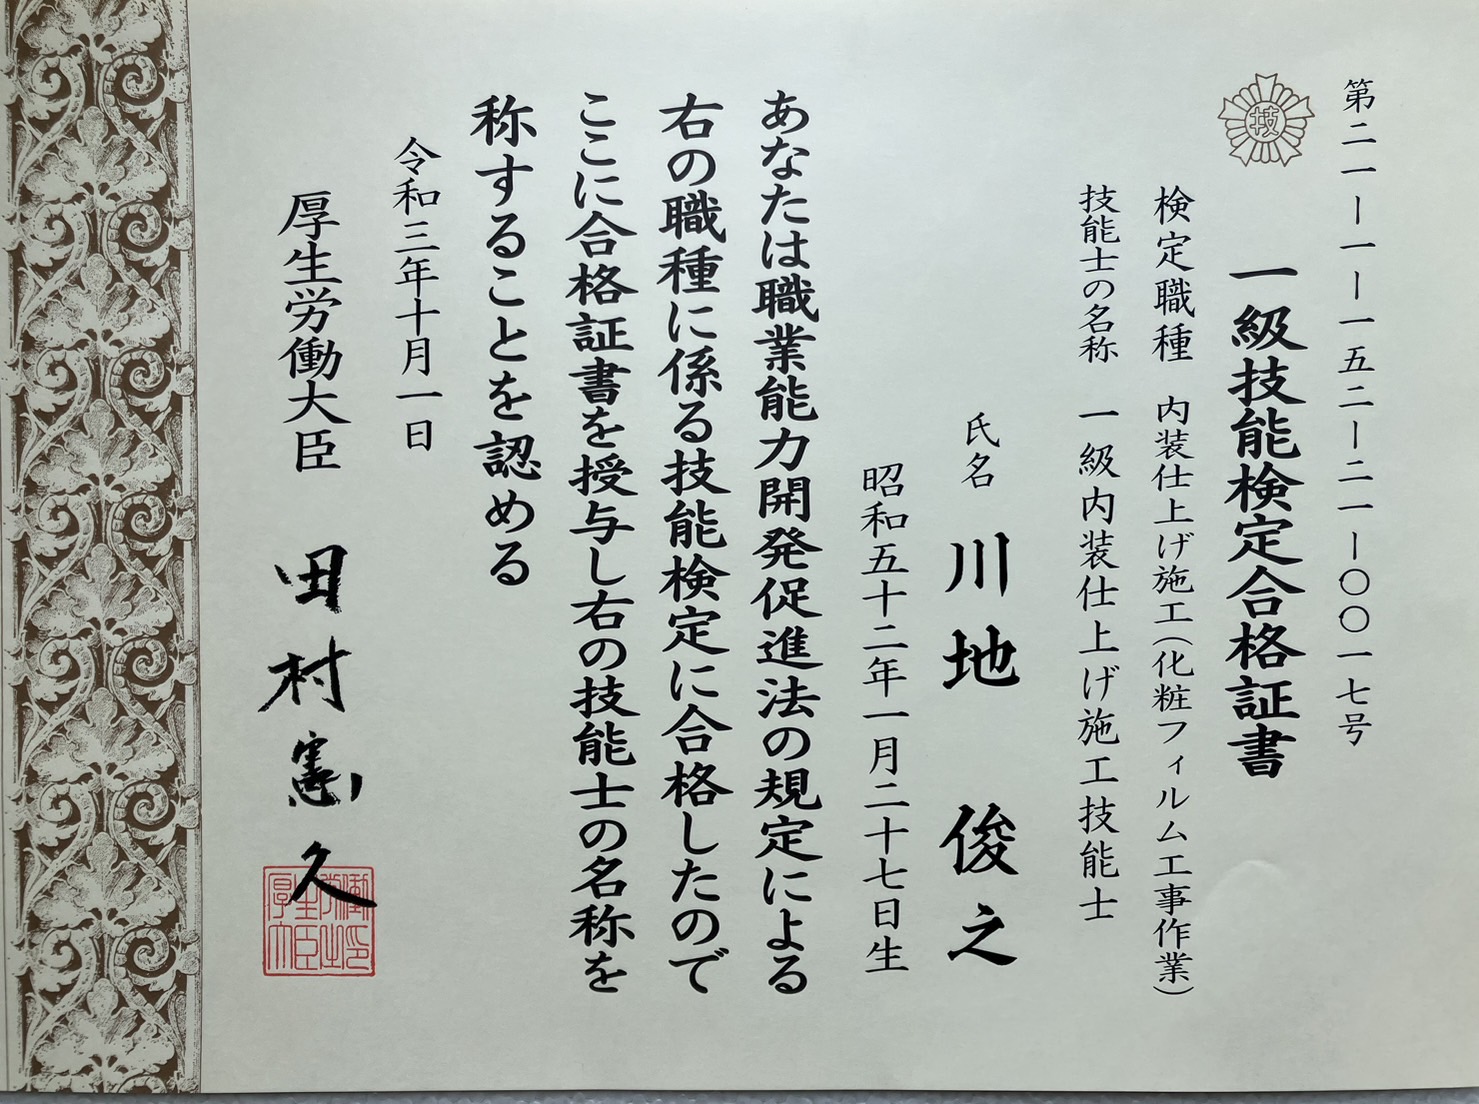 第二一ー一ー一五二ー二一ー〇〇一七号
技
一級技能検定合格証書
検定職種 内装仕上げ施工(化粧フィルム工事作業)
技能士の名称 一級内装仕上げ施工技能士
氏名 川地 俊之
昭和五十二年一月二十七日生
あなたは職業能力開発促進法の規定による
右の職種に係る技能検定に合格したので
ここに合格証書を授与し右の技能士の名称を
称することを認める
令和三年十月一日
厚生労働大臣 田村憲久
厚生労働大臣之印